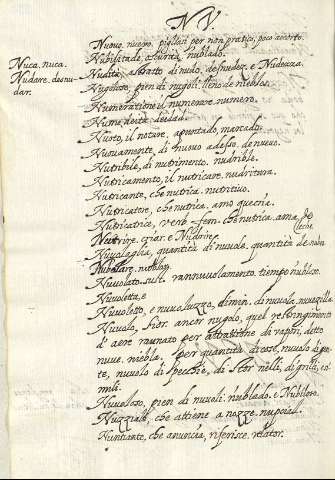 NV
Nuca. nuca.
Nudare. desnu-
dar.
Nuovo. nuevo. pigliasi per non pratico, poco accorto.
Nubilitade, oscurità, nublado.
Nudità, astratto di nudo, desnudez. e Nudezza.
Nugoloso, pien di nugoli. lleno de nieblas.
Numerazione il numerare. numero.
Nume, deità. deidad.
Nuoto, il notare, apuntado, marcado.
Nuovamente, di nuovo adesso. de nuevo.
Nutribile, di nutrimento. nudrible.
Nutricamento, il nutricare. nudritura.
Nutricante, che nutrica. nutritivo.
Nutricatore, che nutrica, amo que cria.
Nutricatrice, verb. fem. che nutrica. ama de
leche.
Nutrire. criar. e Nudrire.
Nuvolaglia, quantità di nuvole. quantità de nuv.
Nubilare. nublar.
Nuvolato. sust. rannuvolamento. tiempo nubloso.
Nuvoletta, e
Nuvoletto, e nuvoluzzo, dimin. di nuvola, nuvezilla.
Nuvolo, sior. ancor nugolo, quel restringimento
d'aere raunato per attrazione da vapori, detto
nuve. niebla, per quantità di cose, nuvolo di po-
te, nuvolo di specchie, di stornelli, di grilli, e si-
mili.
Nuvoloso, pien di nuvoli. nublado. e Nubiloso.
Nuzziale, che attiene a nozze. nupcial.
Nunziante, che anuncia, riferisce. relator.